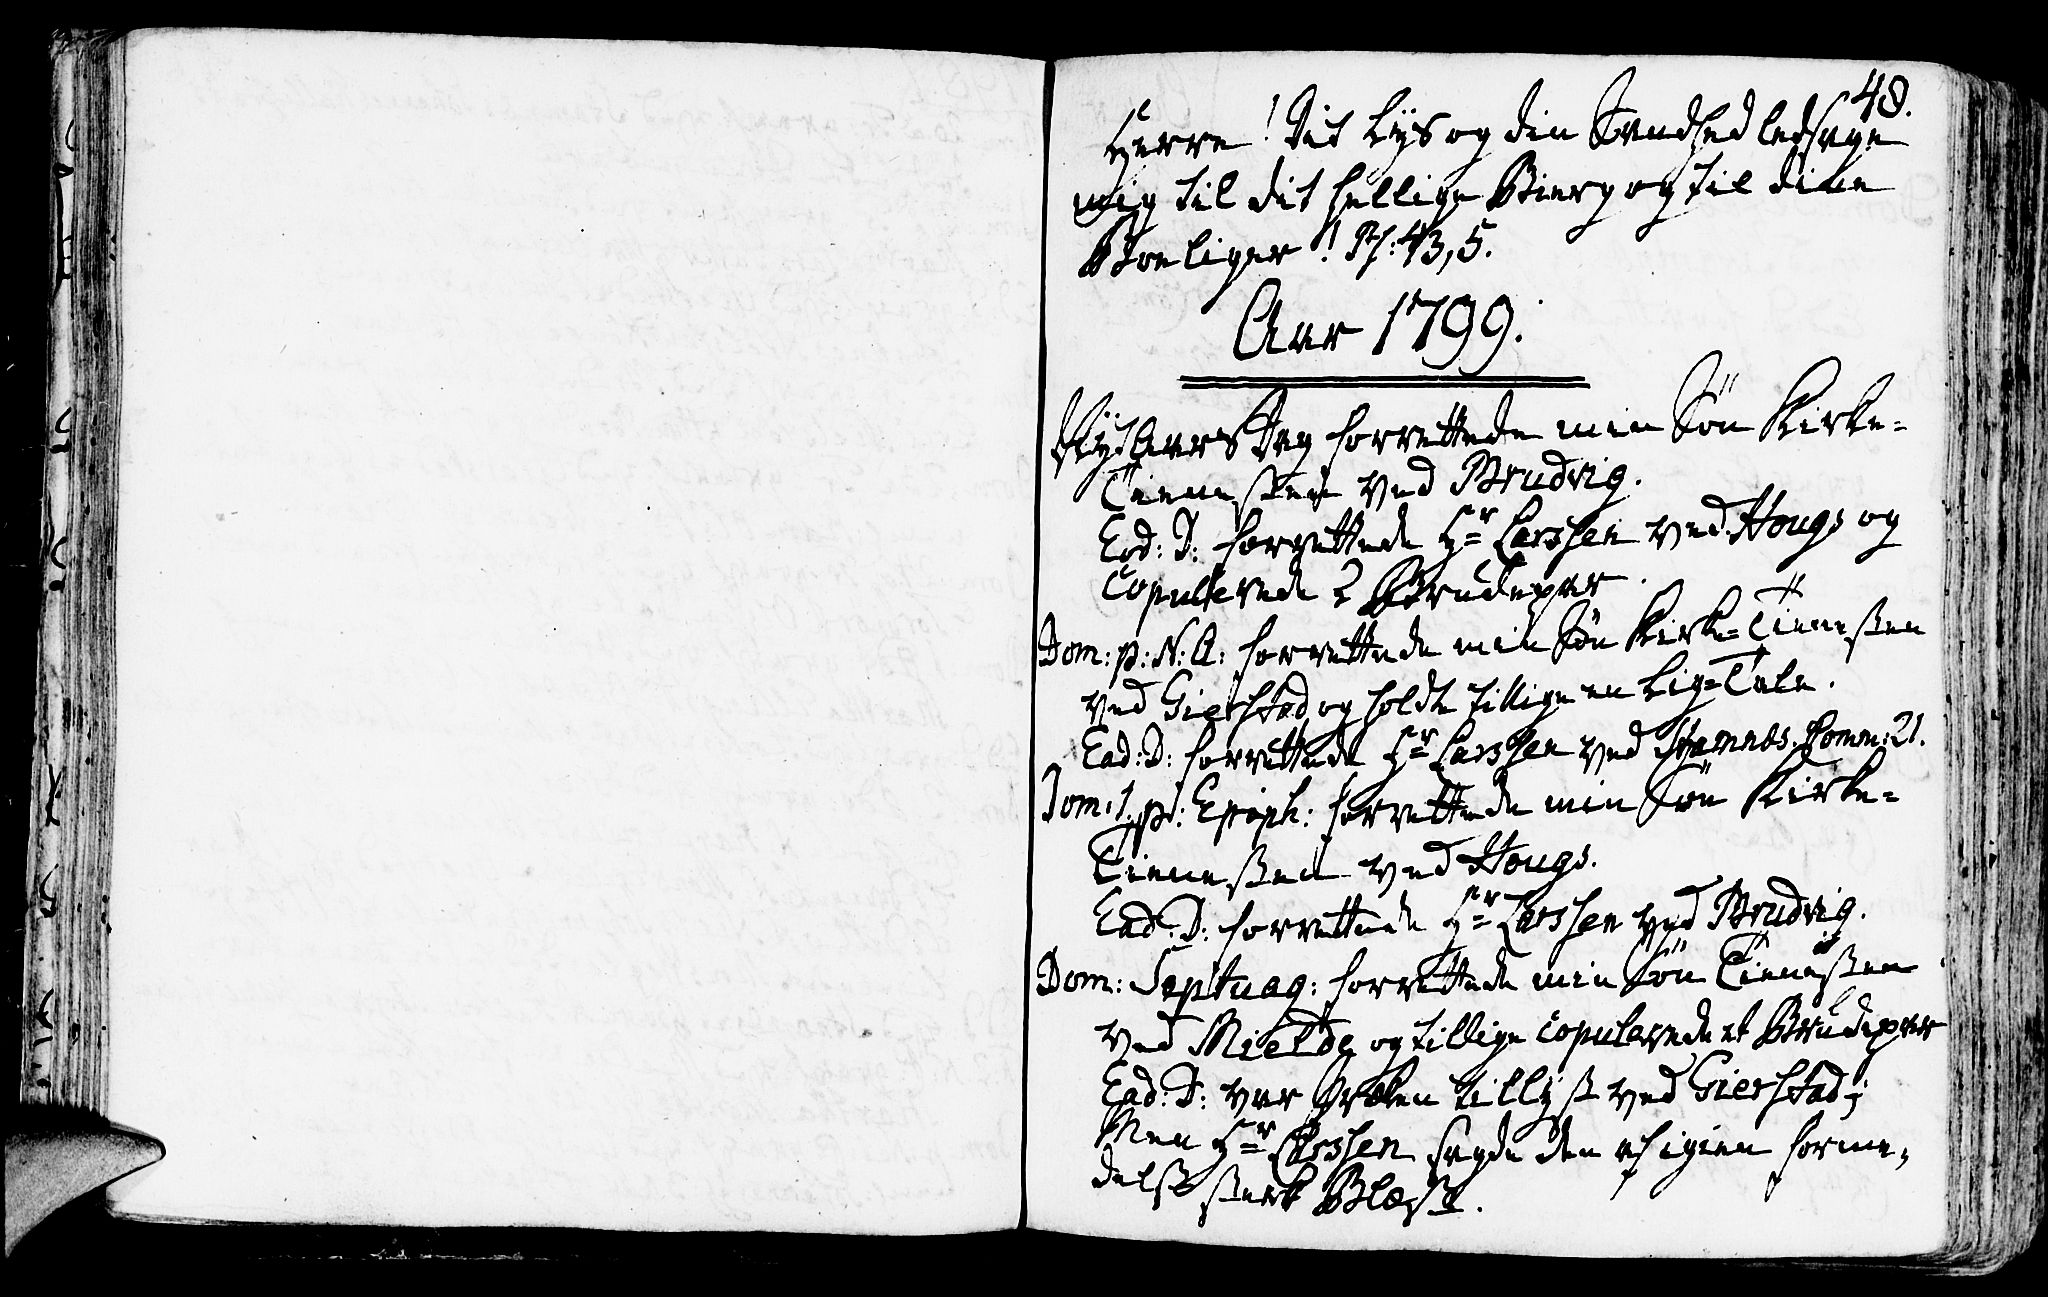 48.
Herre! Dit Lys og din Sandhed ledsage
mig til dit hellige Bierg og til dine
Boeliger! Ps: 43, 5.
Aar 1799.
NytAarsDag forrettede min Søn Kirke=
Tienesten ved Brudvig.
Eod: D: forrettede Hr Larssen ved Hougs og
Copulerede 2 Brudepar.
Dom: p: N: A: forrettede min Søn Kirke=Tienesten
ved Gierstad og holdt tillige en Lig=Tale.
Ead: D: forrettede Hr Larssen ved Stamnæs. Comm: 21.
Dom: 1. p: Epiph: forrettede min Søn Kirke=
Tienesten ved Hougs.
Ead: D: forrettede Hr Larssen ved Brudvig.
Dom: Septuag: forrettede min Søn Tienesten
ved Mielde og tillige copulerede et Brudepar
Ead: D: var Præken tillyst ved Gierstad;
Men Hr Larssen sagde den af igien forme,
delst sterk Blæst.